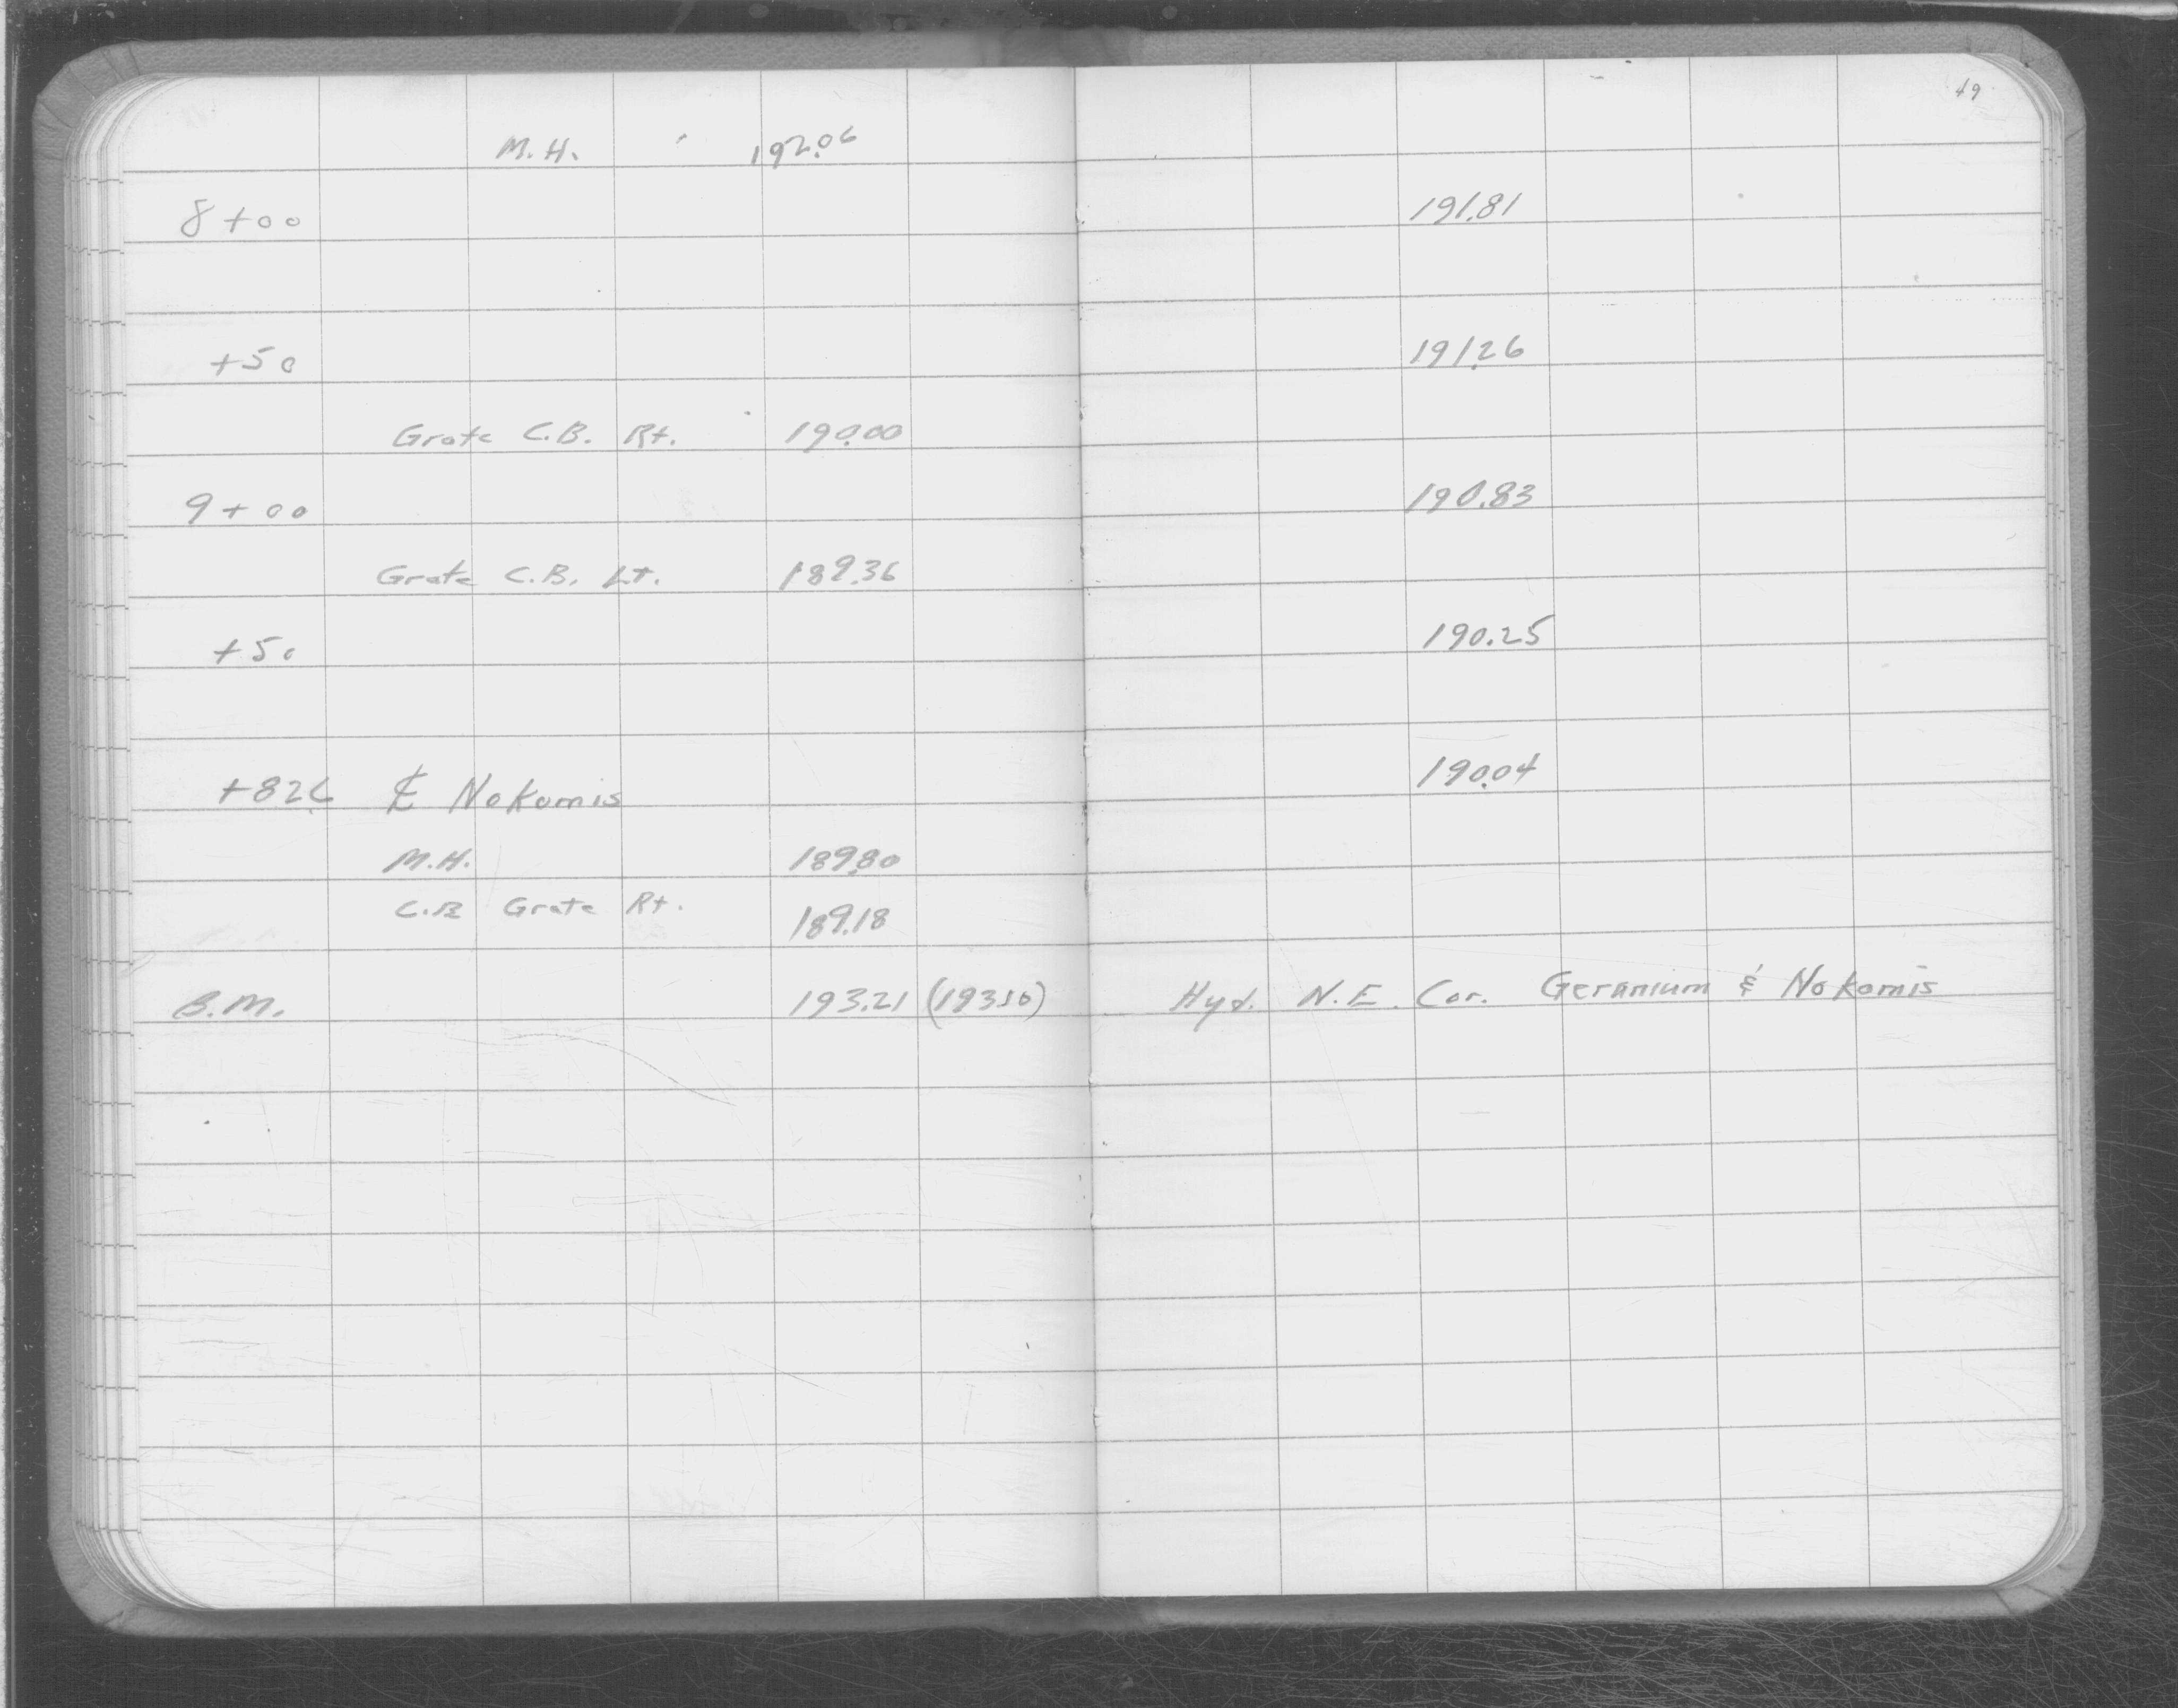 49
M.H. 192.06
8+00 191.81
+50 191.26
Grate C.B. Rt. 190.00
9+00 190.83
Grate C.B. Lt. 189.36
+50 190.25
+82.6 ℄ Nokomis 190.04
M.H. 189.80
C.B Grate Rt. 189.18
B.M. 193.21 (193.10) Hyd. N.E. Cor. Geranium & Nokomis